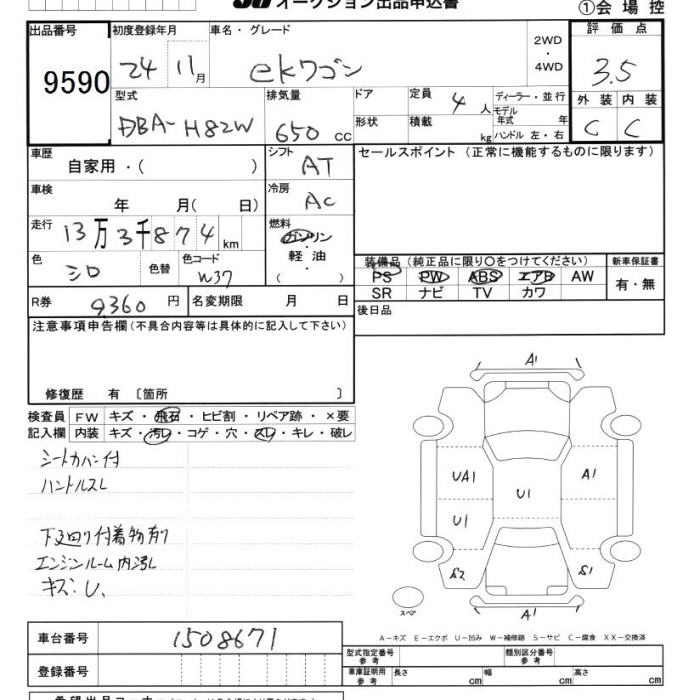 オークション出品申込書
①会場控
出品番号
9590
初度登録年月
24 11月
車名・グレード
ekワゴン
2WD
・
4WD
評価点
3.5
型式
DBA-H82W
排気量
650 cc
ドア
形状
定員
4人
積載
kg
ディーラー・並行
モデル
年式 年
ハンドル 左・右
外装 内装
C C
車歴
自家用・( )
シフト
AT
セールスポイント (正常に機能するものに限ります)
車検
年 月( 日)
冷房
AC
走行
13万3千874km
燃料
ガソリン
・
軽油
( )
色
シロ
色替
色コード
W37
装備品 (純正品に限り〇をつけてください)
PS PW ABS エアB AW
SR ナビ TV カワ
新車保証書
有・無
R券
9,360円
名変期限 月 日
後日品
注意事項申告欄(不具合内容等は具体的に記入して下さい)
修復歴 有 〔箇所 〕
検査員
記入欄
FW キズ・飛石・ヒビ割・リペア跡・×要
内装 キズ・汚れ・コゲ・穴・スレ・キレ・破レ
シートカバー付
ハンドルスレ
下廻り付着物有り
エンジンルーム内汚レ
キズ・U、
A1
UA1
U1
U1
A1
S2
S1
A1
スペア
A－キズ E－エクボ U－凹み W－補修跡 S－サビ C－腐食 XX－交換済
車台番号
1508671
登録番号
型式指定番号
参考
類別区分番号
参考
車庫証明用
参考
長さ cm
幅 cm
高さ cm